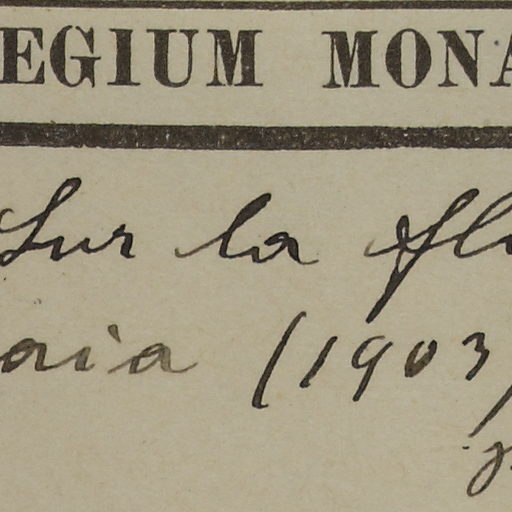 EGIUM MONA
Sur la fl
aia (1903)